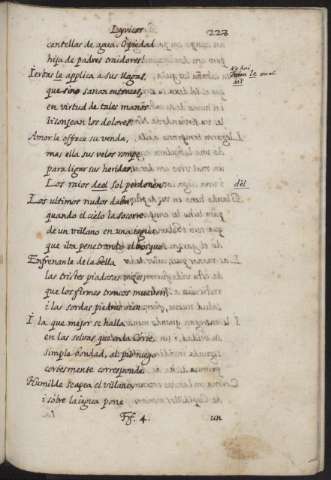 Lyricas 223
centellas de agua. O piedad
hija de padres traidores!
Ierbas le applica a sus llagas,
que si no sanan entonces,
en virtud de tales manos
lisonjean los dolores.
Amor le offrece su venda,
mas ella sus velos rompe
para ligar sus heridas,
Los raios deel sol perdonen.
del
Los ultimos nudos daba,
quando el cielo la socorre
de un villano en una iegua,
que iba penetrando el bosque.
Enfrenanle de la bella
las tristes piadosas voces,
que los firmes troncos mueben,
i las sordas piedras oien.
I la que mejor se halla
en las selvas, que en la Corte
simple bondad, al pio ruego
cortesmente corresponde.
Humilde se apea el villano,
i sobre la iegua pone
Ff. 4. un